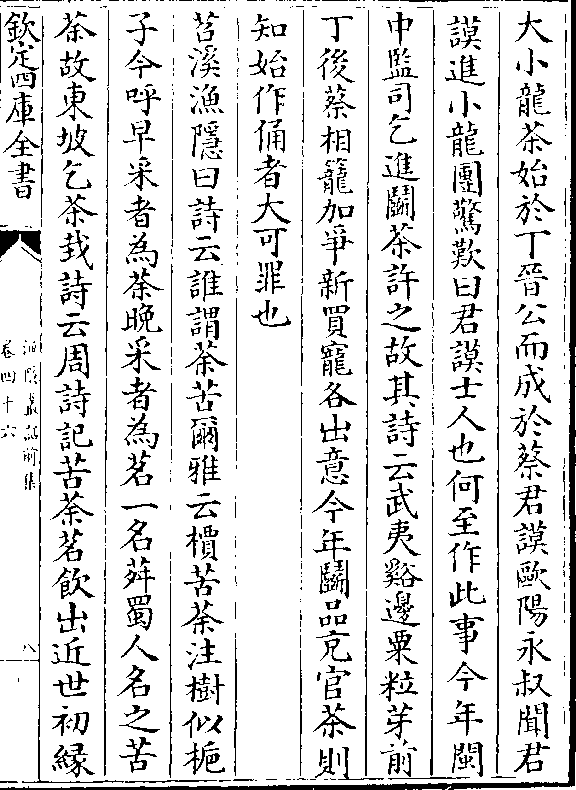 大小龍茶始於丁晉公而成於蔡君謨歐陽永叔聞君
謨進小龍團驚歎曰君謨士人也何至作此事今年閩
中監司乞進鬭茶許之故其詩云武夷谿邊粟粒芽前
丁後蔡相籠加爭新買寵各出意今年鬭品充官茶則
知始作俑者大可罪也
苕溪漁隱曰詩云誰謂荼苦爾雅云檟苦荼注樹似梔
子今呼早采者為茶晚采者為茗一名荈蜀人名之苦
荼故東坡乞茶栽詩云周詩記苦荼茗飲出近世初緣
欽定四庫全書
漁隱叢話前集
卷四十六
八